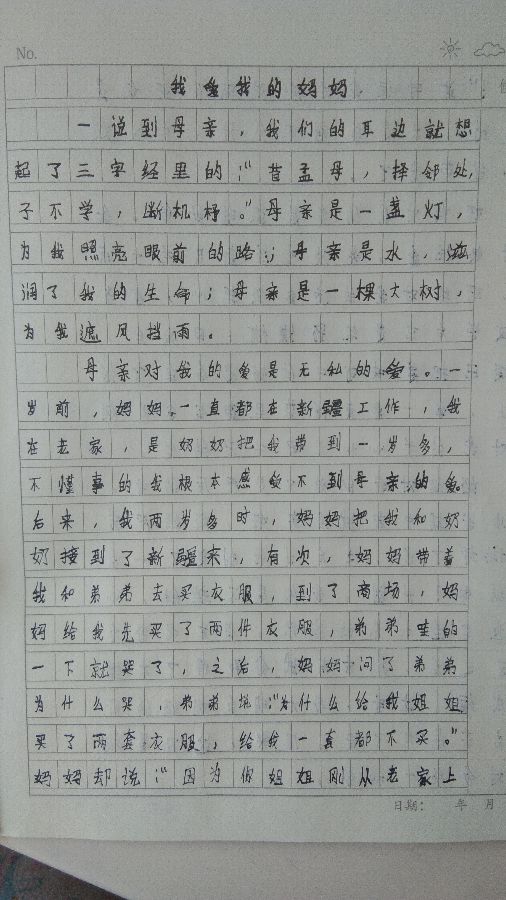 No.
我爱我的妈妈
一说到母亲，我们的耳边就想
起了三字经里的：“昔孟母，择邻处，
子不学，断机杼。”母亲是一盏灯，
为我照亮眼前的路；母亲是水，滋
润了我的生命；母亲是一棵大树，
为我遮风挡雨。
母亲对我的爱是无私的爱。一
岁前，妈妈一直都在新疆工作，我
在老家，是奶奶把我带到一岁多，
不懂事的我根本感受不到母亲的爱。
后来，我两岁多时，妈妈把我和奶
奶接到了新疆来，有次，妈妈带着
我和弟弟去买衣服，到了商场，妈
妈给我先买了两件衣服，弟弟哇的
一下就哭了，之后，妈妈问了弟弟
为什么哭，弟弟说：“为什么给我姐姐
买了两套衣服，给我一套都不买。”
妈妈却说：“因为你姐姐刚从老家上
日期： 年 月